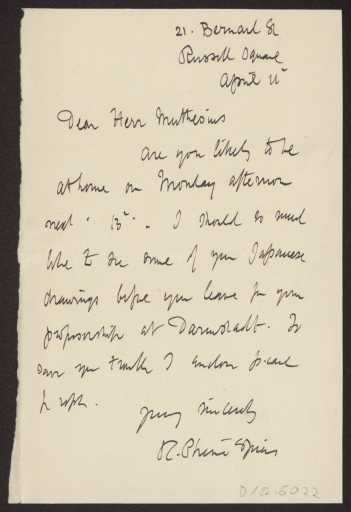 21. Bernard St
Russell Square
April 11th
Dear Herr Muthesius
Are you likely to be
at home on Monday afternoon
next "15th". I should so much
like to see some of your Japanese
drawings before you leave for your
professorship at Darmstadt. To
save you trouble I enclose p. card
for reply.
yours sincerely
R. Phené Spiers
D102-5022